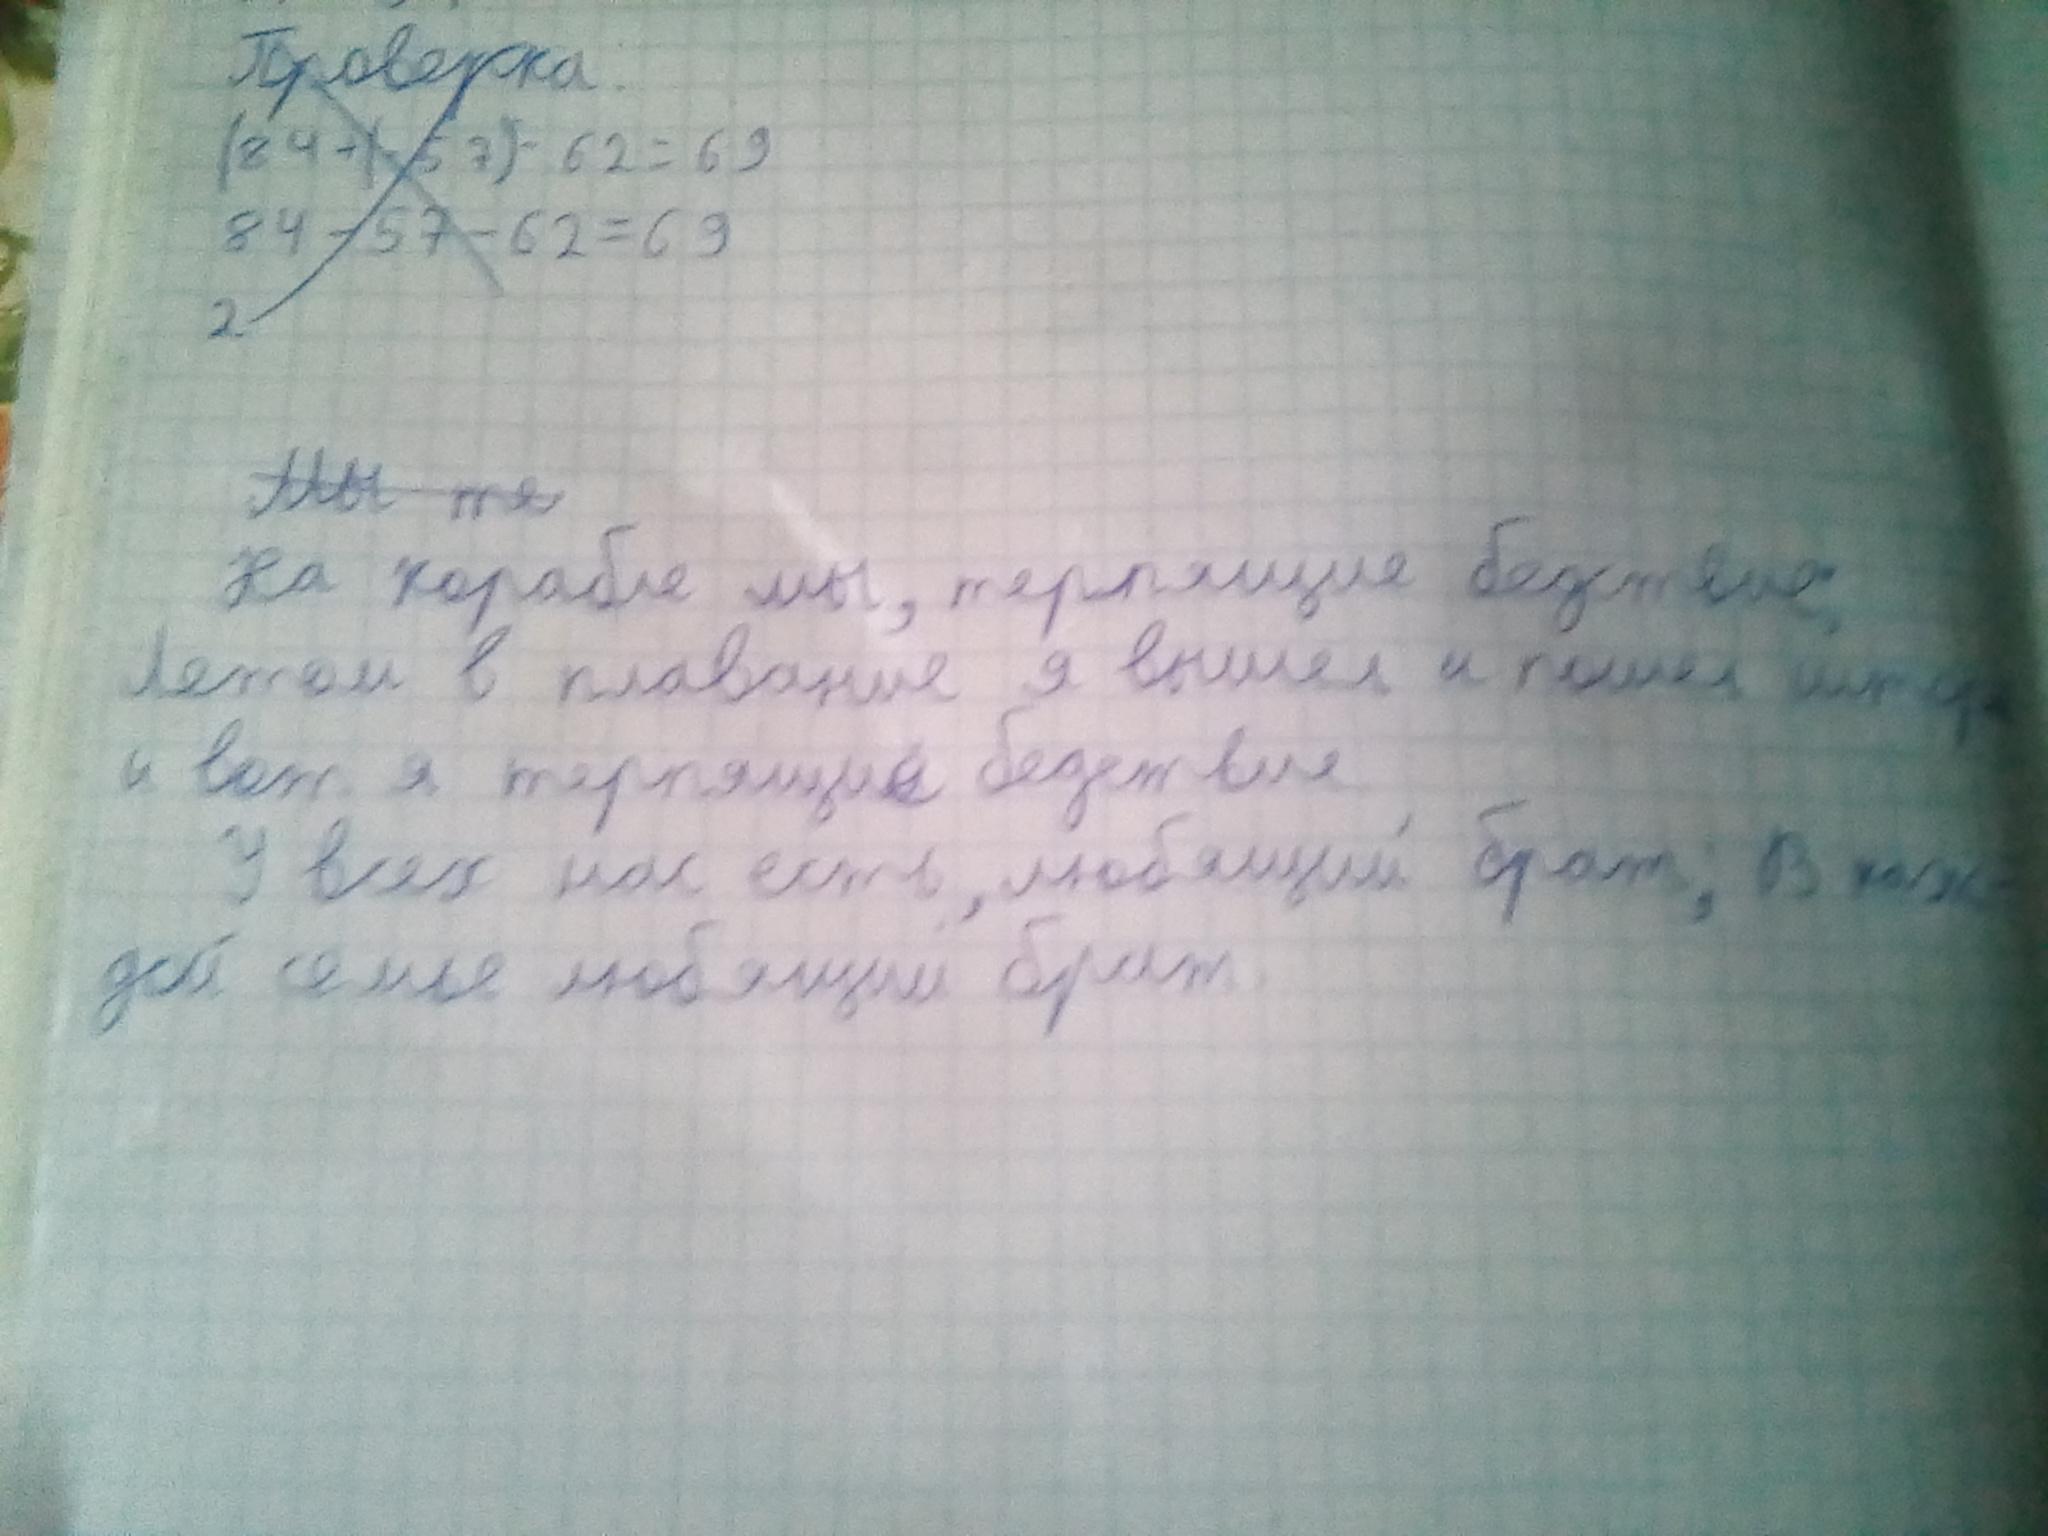 Проверка.
(84+(-57)- 62=69
84-57-62=69
2
Мы те
На корабле мы, терпящие бедствие,
Летом в плавание я вышел и пошел
и вот я терпящие бедствие
У всех нас есть, любящий брат; В каж-
дой семье любящий брат.